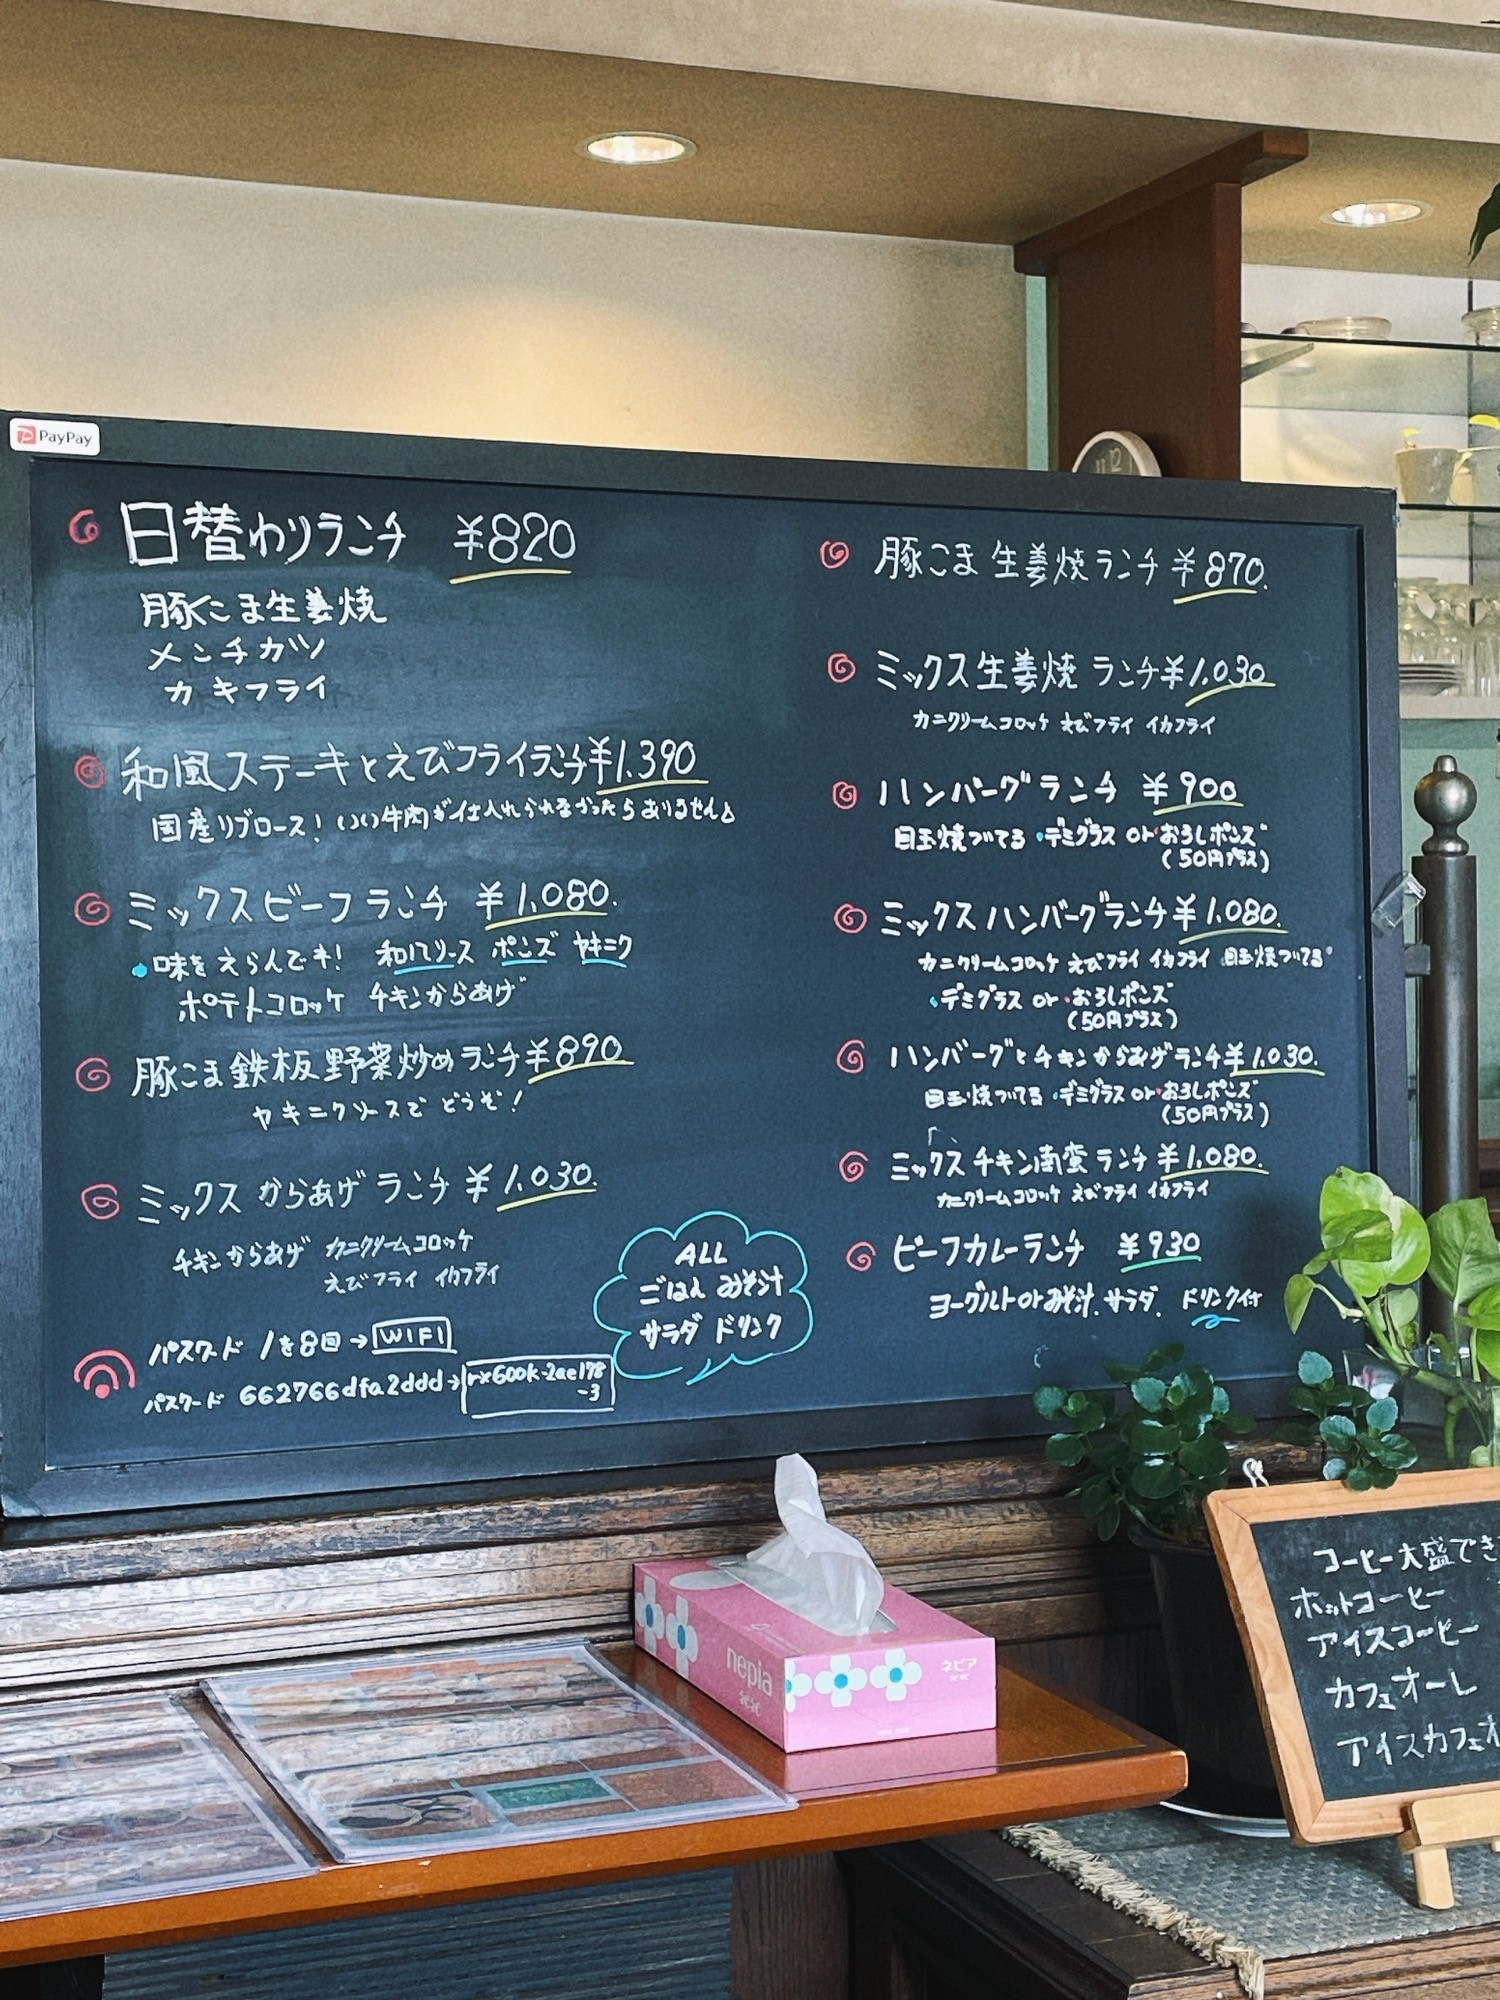 PayPay
日替わりランチ ¥820
豚こま生姜焼
メンチカツ
カキフライ
和風ステーキとえびフライランチ¥1.390
国産リブロース! いい牛肉が仕入れられなかったらありません
ミックスビーフランチ ¥1.080.
味をえらんで下! 和風ソース ポンズ ヤキニク
ポテトコロッケ チキンからあげ
豚こま鉄板野菜炒めランチ¥890
ヤキニクソースでどうぞ!
ミックスからあげランチ ¥1.030.
チキンからあげ カニクリームコロッケ
えびフライ イカフライ
パスワード 1を8回→WIFI
パスワード 662766dfa2ddd→rx600k-2ae178
-3
ALL
ごはん みそ汁
サラダ ドリンク
豚こま生姜焼ランチ¥870.
ミックス生姜焼ランチ¥1.030
カニクリームコロッケ えびフライ イカフライ
ハンバーグランチ ¥900
目玉焼ついてる ・デミグラス or ・おろしポンズ
(50円プラス)
ミックスハンバーグランチ¥1.080.
カニクリームコロッケ えびフライ イカフライ 目玉焼ついてる
・デミグラス or ・おろしポンズ
(50円プラス)
ハンバーグとチキンからあげランチ¥1.030.
目玉焼ついてる ・デミグラス or ・おろしポンズ
(50円プラス)
ミックスチキン南蛮ランチ¥1.080.
カニクリームコロッケ えびフライ イカフライ
ビーフカレーランチ ¥930
ヨーグルトorみそ汁.サラダ. ドリンク付
nepia
ネピア
コーヒー大盛でき
ホットコーヒー
アイスコーヒー
カフェオーレ
アイスカフェオ